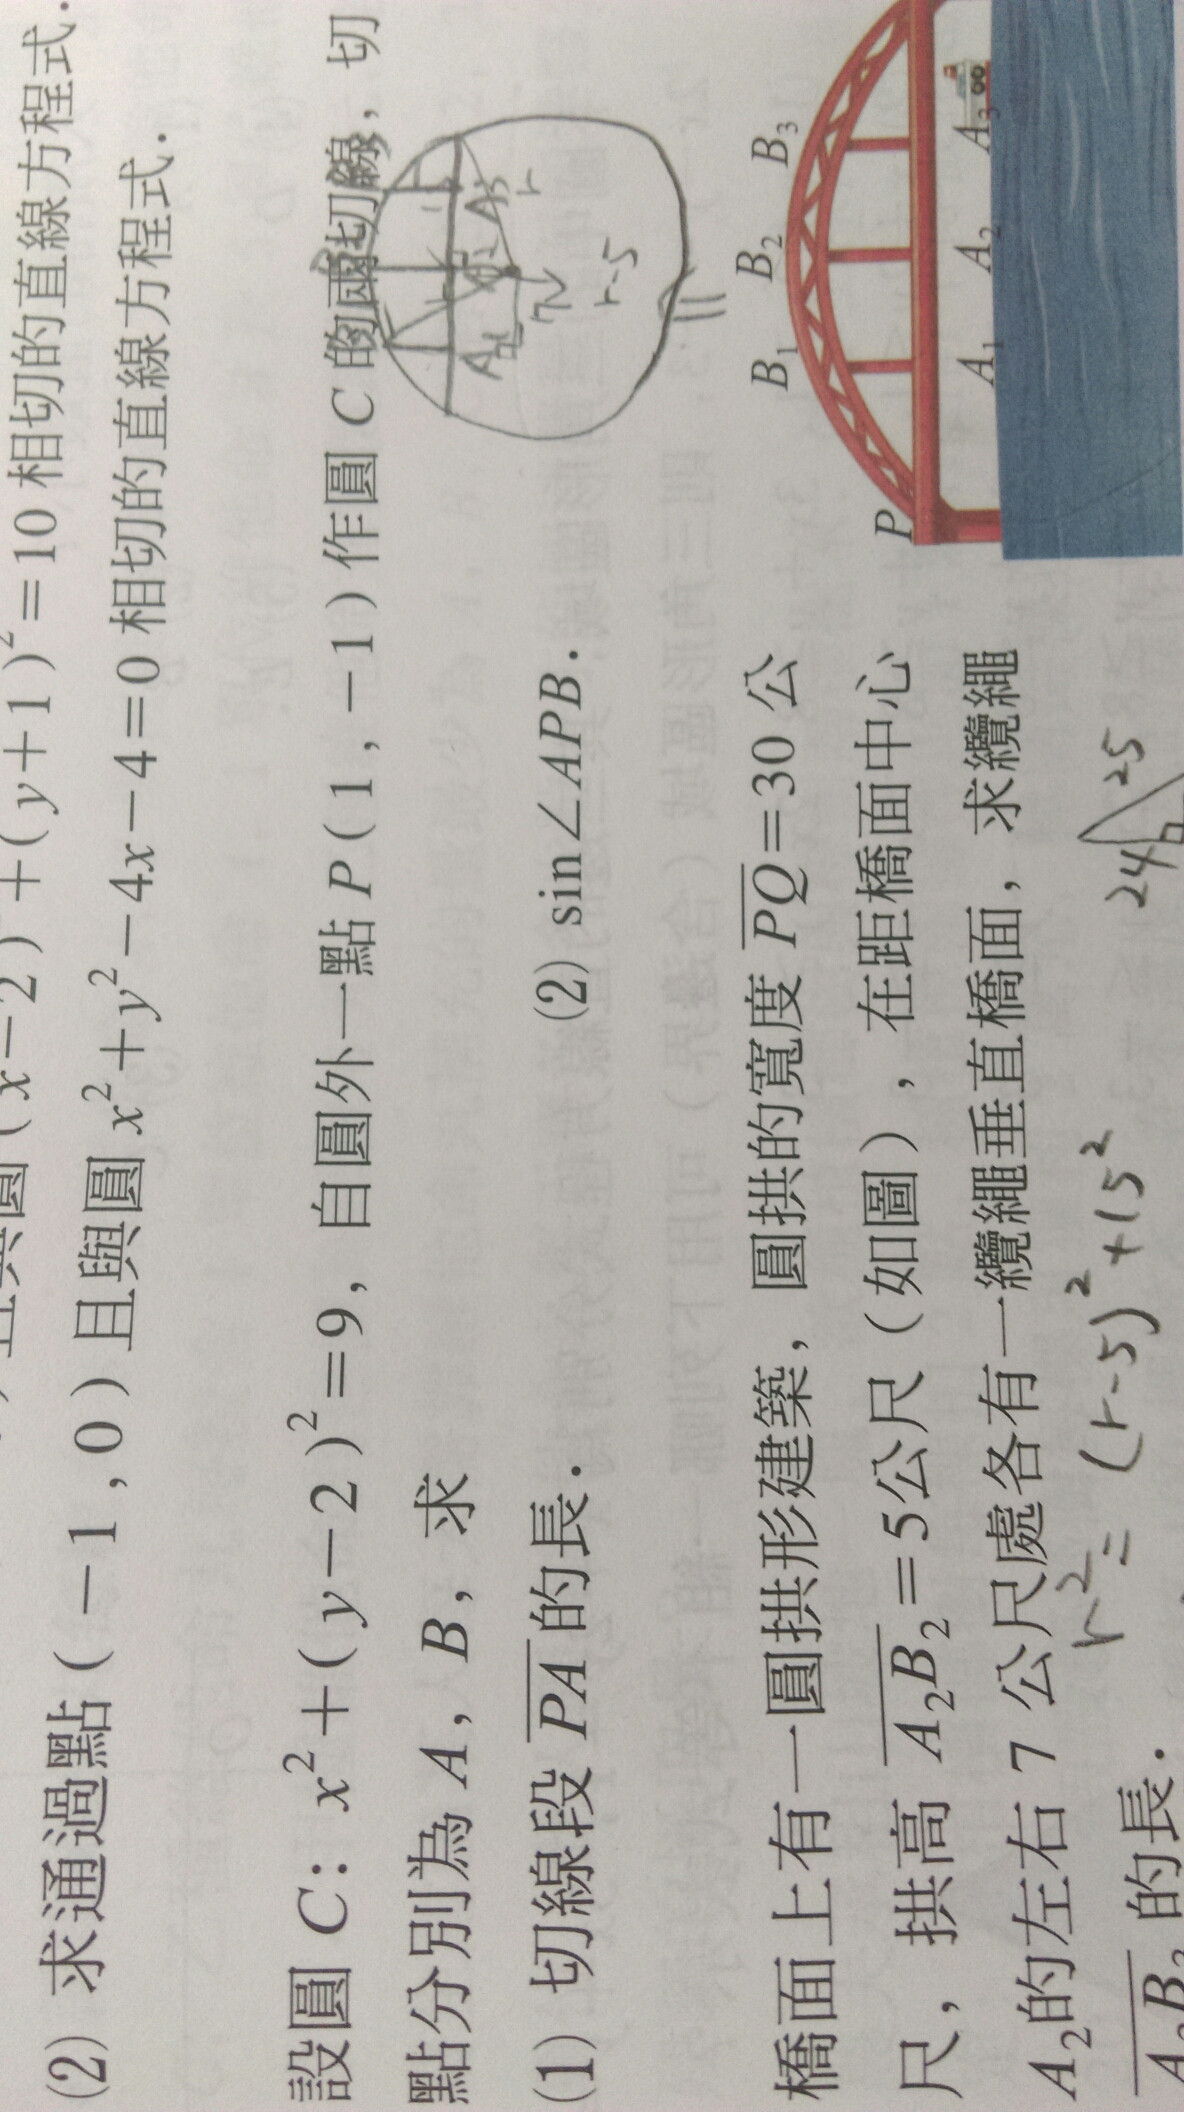 (x－2)²＋(y＋1)²＝10 相切的直線方程式．
(2) 求通過點(－1，0)且與圓 x²＋y²－4x－4＝0 相切的直線方程式．
設圓 C：x²＋(y－2)²＝9，自圓外一點 P(1，－1)作圓 C 的兩切線，切
點分別為 A，B，求
(1) 切線段 PA 的長．
(2) sin∠APB．
A₃
r
r－5
7
橋面上有一圓拱形建築，圓拱的寬度 PQ＝30 公
尺，拱高 A₂B₂＝5公尺（如圖），在距橋面中心
A₂的左右 7 公尺處各有一纜繩垂直橋面，求纜繩
的長．
B₁ B₂ B₃
P
A₁ A₂ A₃
r²＝(r－5)²＋15²
24 25